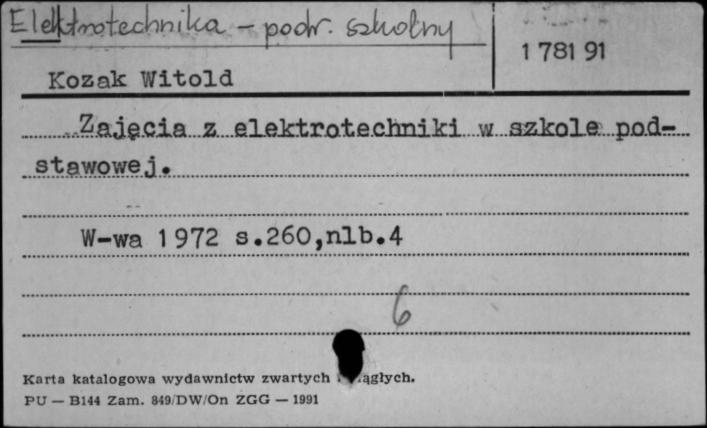 Elektrotechnika – podr. szkolny
178191
Kozak Witold
Zajęcia z elektrotechniki w szkole pod-
stawowej.
W-wa 1972 s.260,nlb.4
6
Karta katalogowa wydawnictw zwartych ągłych.
PU — B144 Zam. 849/DW/On ZGG — 1991